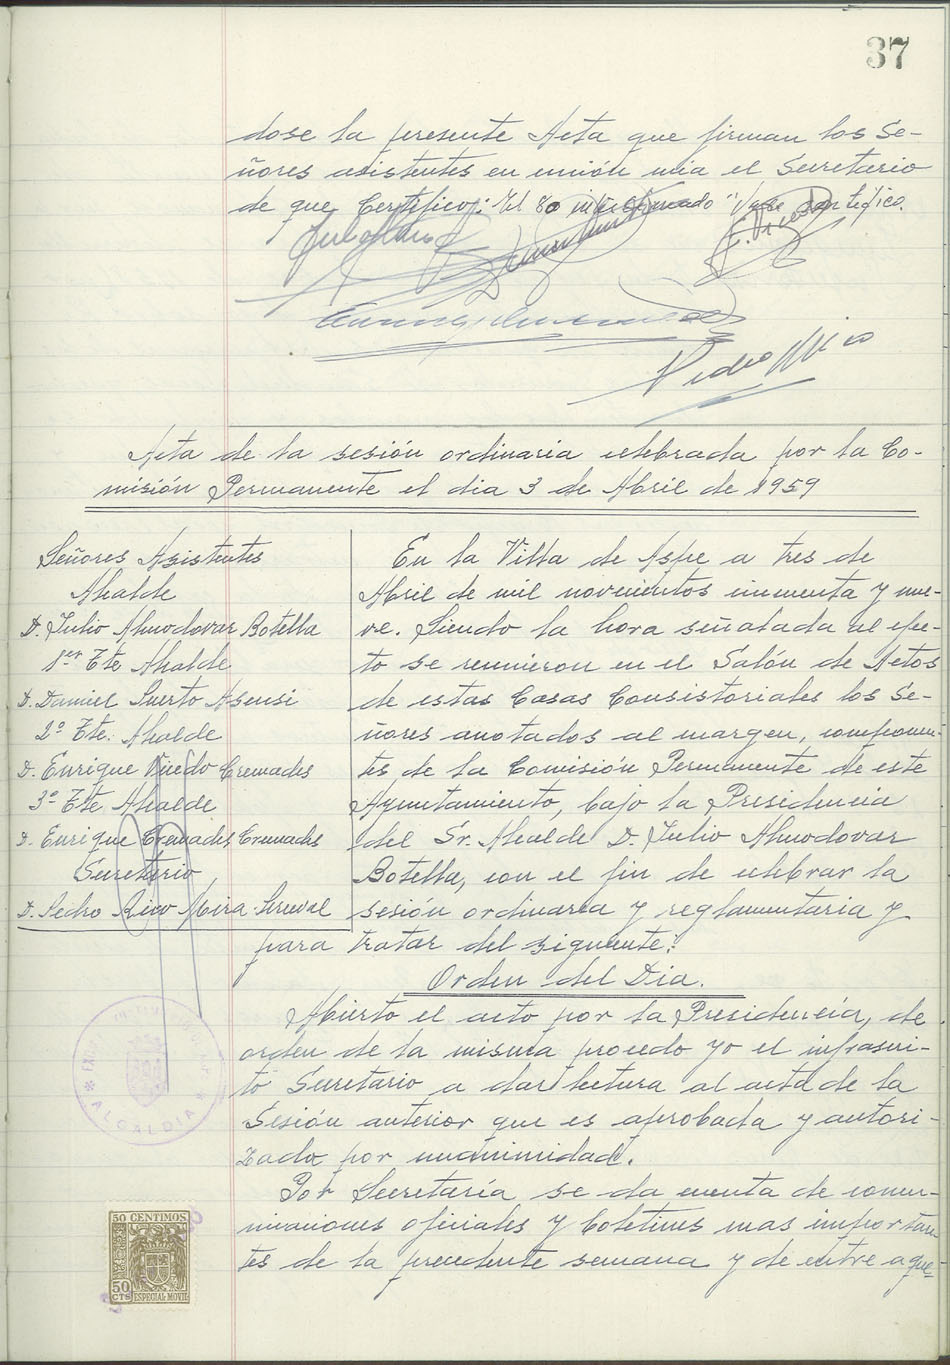 37
dose la presente Acta que firman los Se-
ñores asistentes en unión mia el Secretario
de que Certifico: El 80
Pedro Rico
Acta de la sesión ordinaria celebrada por la Co-
misión Permanente el dia 3 de Abril de 1959
Señores Asistentes
Alcalde
D. Julio Almodovar Botella
1er Tte Alcalde
D. Daniel Puerto Asensi
2º Tte. Alcalde
D. Enrique Cremades
3º Tte Alcalde
D. Enrique Cremades Cremades
Secretario
D. Pedro Rico Mira
En la Villa de Aspe a tres de
Abril de mil novecientos cincuenta y nue-
ve. Siendo la hora señalada al efec-
to se reunieron en el Salón de Actos
de estas Casas Consistoriales los Se-
ñores anotados al margen, componen-
tes de la Comisión Permanente de este
Ayuntamiento, bajo la Presidencia
del Sr. Alcalde D. Julio Almodovar
Botella, con el fin de celebrar la
sesión ordinaria y reglamentaria y
para tratar del siguiente:
Orden del Dia.
Abierto el acto por la Presidencia, de
orden de la misma procedo yo el infrascri-
to Secretario a dar lectura al acta de la
Sesión anterior que es aprobada y autori-
zada por unanimidad.
Por Secretaría se da cuenta de comu-
nicaciones oficiales y Boletines mas importan-
tes de la precedente semana y de entre aque-
ALCALDIA
50 CENTIMOS
50
CTS ESPECIAL MOVIL